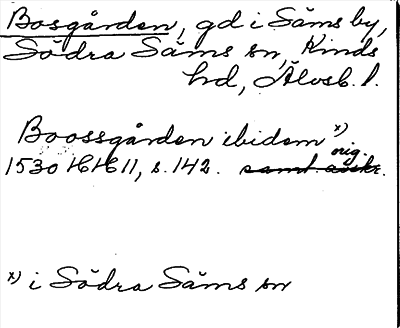 Bosgården, gd i Säms by,
Södra Säms sn, Kinds
hd, Älvsb. l.
Boossgården ibidem x)
orig.
1530 HH 11, s. 142. samt avskr.
x) i Södra Säms sn